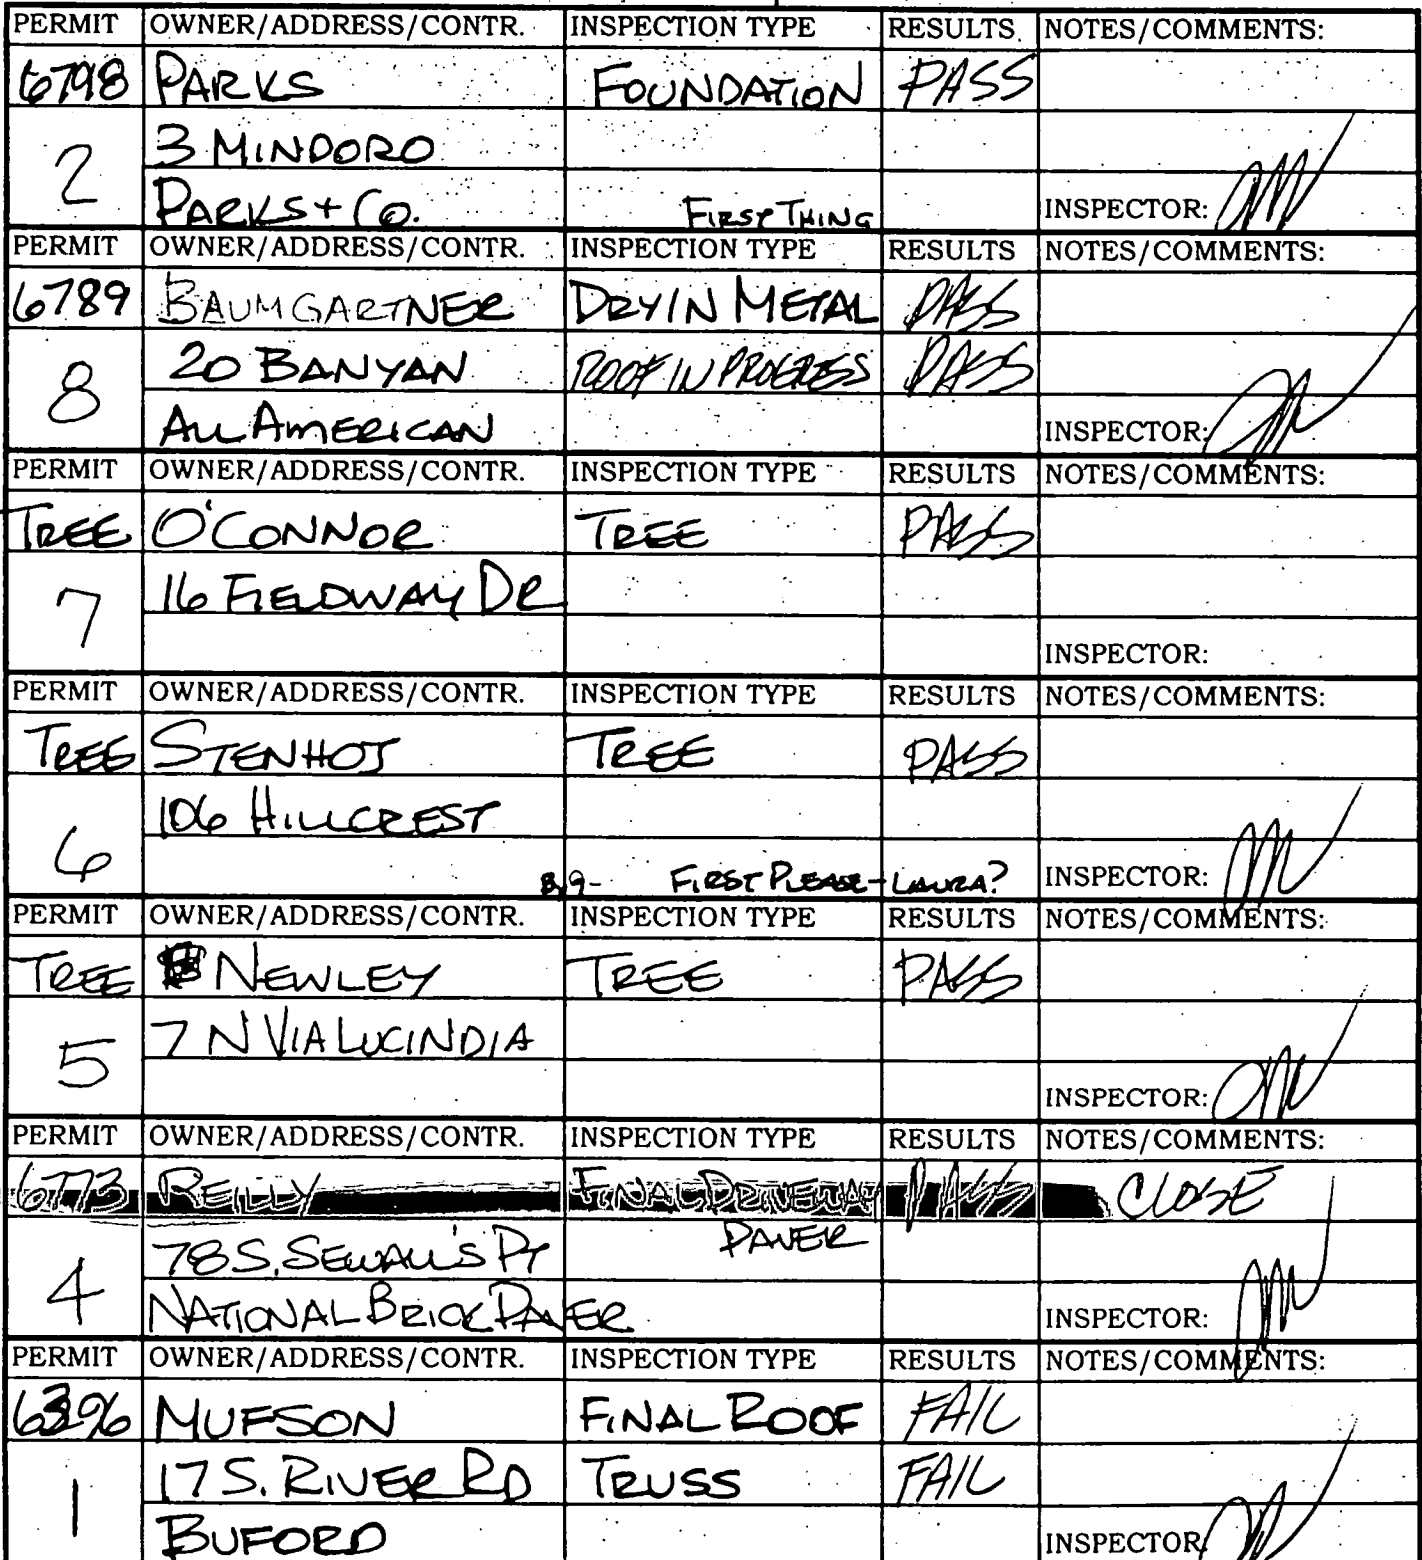 PERMIT OWNER/ADDRESS/CONTR. INSPECTION TYPE RESULTS NOTES/COMMENTS:
6798 PARKS FOUNDATION PASS
2 3 MINDORO
PARKS + CO. FIRST THING INSPECTOR:
PERMIT OWNER/ADDRESS/CONTR. INSPECTION TYPE RESULTS NOTES/COMMENTS:
6789 BAUMGARTNER DRYIN METAL PASS
8 20 BANYAN ROOF IN PROGRESS PASS
ALL AMERICAN INSPECTOR:
PERMIT OWNER/ADDRESS/CONTR. INSPECTION TYPE RESULTS NOTES/COMMENTS:
TREE O'CONNOR TREE PASS
7 16 FIELDWAY DR
INSPECTOR:
PERMIT OWNER/ADDRESS/CONTR. INSPECTION TYPE RESULTS NOTES/COMMENTS:
TREE STENHOJ TREE PASS
6 106 HILLCREST
FIRST PLEASE - LAURA? INSPECTOR:
PERMIT OWNER/ADDRESS/CONTR. INSPECTION TYPE RESULTS NOTES/COMMENTS:
TREE NEWLEY TREE PASS
5 7 N VIA LUCINDIA
INSPECTOR:
PERMIT OWNER/ADDRESS/CONTR. INSPECTION TYPE RESULTS NOTES/COMMENTS:
6773 REILLY FINAL DRIVEWAY PASS CLOSE
4 78 S. SEWALL'S PT PAVER
NATIONAL BRICK PAVER INSPECTOR:
PERMIT OWNER/ADDRESS/CONTR. INSPECTION TYPE RESULTS NOTES/COMMENTS:
MUFSON FINAL ROOF FAIL
1 17 S. RIVER RD TRUSS FAIL
BUFORD INSPECTOR